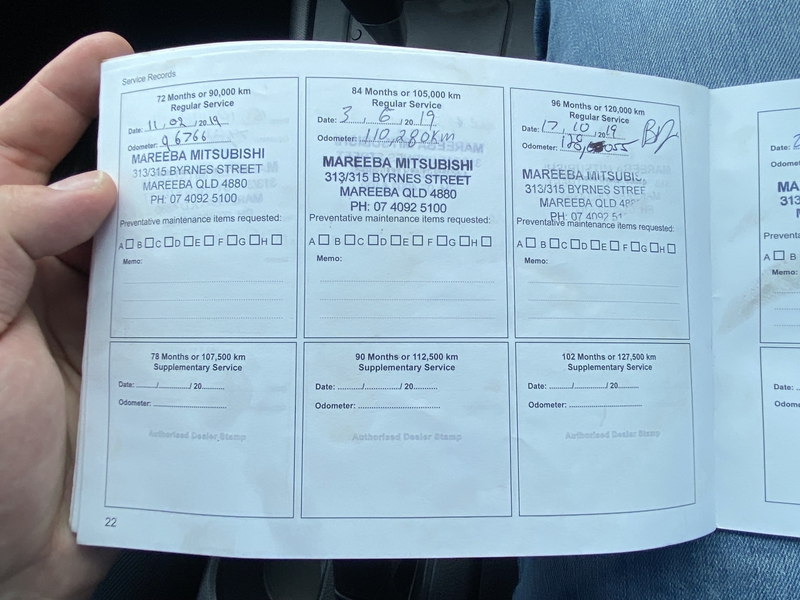 Service Records
72 Months or 90,000 km
Regular Service
Date: 11 / 02 / 2019
Odometer: 96766
MAREEBA MITSUBISHI
313/315 BYRNES STREET
MAREEBA QLD 4880
PH: 07 4092 5100
Preventative maintenance items requested:
A B C D E F G H
Memo:
84 Months or 105,000 km
Regular Service
Date: 3 / 6 / 2019
Odometer: 110,280km
MAREEBA MITSUBISHI
313/315 BYRNES STREET
MAREEBA QLD 4880
PH: 07 4092 5100
Preventative maintenance items requested:
A B C D E F G H
Memo:
96 Months or 120,000 km
Regular Service
Date: 17 / 10 / 2019
Odometer:
MAREEBA MITSUBIS
313/315 BYRNES STREE
MAREEBA QLD 48
PH: 07 4092 51
Preventative maintenance items requested:
A B C D E F G H
Memo:
78 Months or 107,500 km
Supplementary Service
Date: ........./............/ 20..........
Odometer: ..............................
Authorised Dealer Stamp
90 Months or 112,500 km
Supplementary Service
Date: ........./............/ 20..........
Odometer: ..............................
Authorised Dealer Stamp
102 Months or 127,500 km
Supplementary Service
Date: ........./............/ 20..........
Odometer: ..............................
Authorised Dealer Stamp
22
Date:
Odome
MA
313
Preventa
A B
Memo:
Date:
Odome